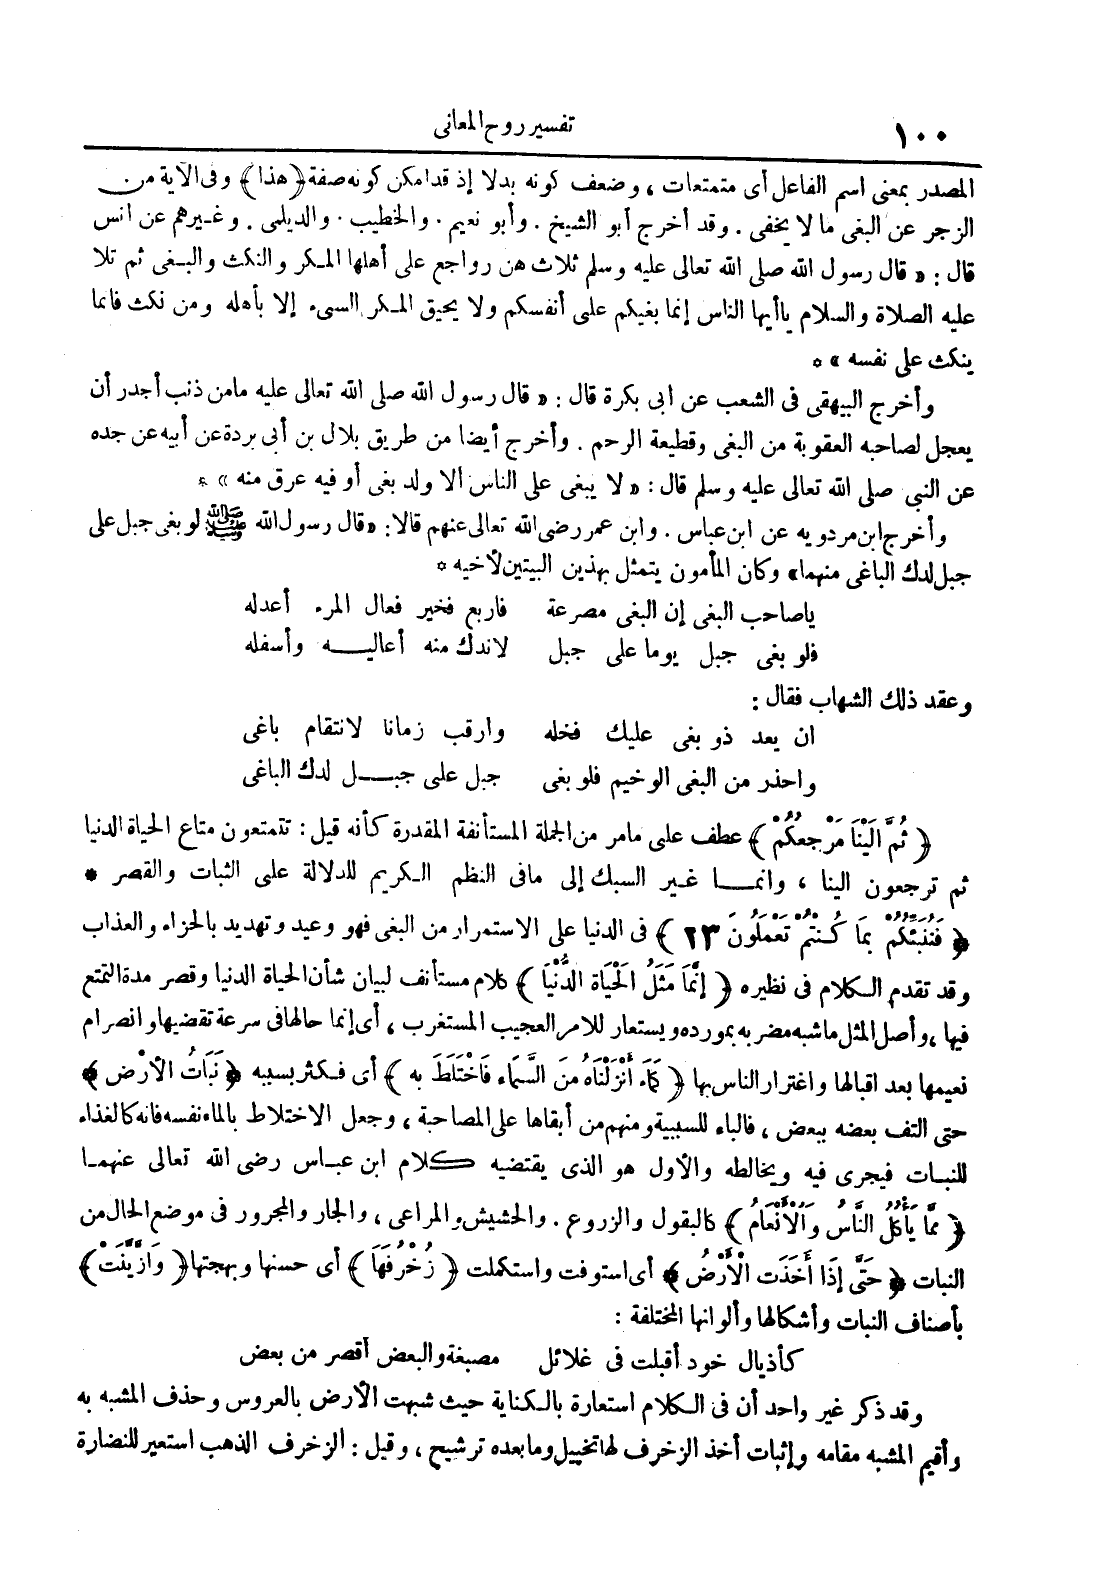 ١٠٠ تفسير روح المعانى
المصدر بمعنى اسم الفاعل أى متمتعات ، وضعف كونه بدلا إذ قد امكن كونه صفة ﴿هذا﴾ وفى الآية من
الزجر عن البغى ما لا يخفى . وقد أخرج أبو الشيخ . وأبو نعيم . والخطيب . والديلمى . وغيرهم عن انس
قال : « قال رسول الله صلى الله تعالى عليه وسلم ثلاث هن رواجع على أهلها المكر والنكث والبغى ثم تلا
عليه الصلاة والسلام ياأيها الناس إنما بغيكم على أنفسكم ولا يحيق المكر السىء إلا بأهله ومن نكث فانما
ينكث على نفسه » *
وأخرج البيهقى فى الشعب عن ابى بكرة قال : « قال رسول الله صلى الله تعالى عليه مامن ذنب أجدر أن
يعجل لصاحبه العقوبة من البغى وقطيعة الرحم . وأخرج أيضا من طريق بلال بن أبى بردة عن أبيه عن جده
عن النبى صلى الله تعالى عليه وسلم قال : « لا يبغى على الناس الا ولد بغى أو فيه عرق منه » *
وأخرج ابن مردويه عن ابن عباس . وابن عمر رضى الله تعالى عنهم قالا: «قال رسول الله ﷺ لو بغى جبل على
جبل لدك الباغى منهما» وكان المأمون يتمثل بهذين البيتين لأخيه *
ياصاحب البغى إن البغى مصرعة فاربع فخير فعال المرء أعدله
فلو بغى جبل يوما على جبل لاندك منه أعاليه وأسفله
وعقد ذلك الشهاب فقال :
ان يعد ذو بغى عليك فخله وارقب زمانا لانتقام باغى
واحذر من البغى الوخيم فلو بغى جبل على جبل لدك الباغى
﴿ ثُمَّ إِلَيْنَا مَرْجِعُكُمْ ﴾ عطف على مامر من الجملة المستأنفة المقدرة كأنه قيل : تتمتعون متاع الحياة الدنيا
ثم ترجعون الينا ، وانما غير السبك إلى مافى النظم الكريم للدلالة على الثبات والقصر *
﴿ فَنُنَبِّئُكُمْ بِمَا كُنْتُمْ تَعْمَلُونَ ٢٣ ﴾ فى الدنيا على الاستمرار من البغى فهو وعيد وتهديد بالجزاء والعذاب
وقد تقدم الكلام فى نظيره ﴿ إِنَّمَا مَثَلُ الْحَيَاةِ الدُّنْيَا ﴾ كلام مستأنف لبيان شأن الحياة الدنيا وقصر مدة التمتع
فيها ، وأصل المثل ماشبه مضربه بمورده ويستعار للامر العجيب المستغرب ، أى إنما حالها فى سرعة تقضيها وانصرام
نعيمها بعد اقبالها واغترار الناس بها ﴿ كَمَاءٍ أَنْزَلْنَاهُ مِنَ السَّمَاءِ فَاخْتَلَطَ بِهِ ﴾ أى فكثر بسببه ﴿ نَبَاتُ الْأَرْضِ ﴾
حتى التف بعضه ببعض ، فالباء للسببية ومنهم من أبقاها على المصاحبة ، وجعل الاختلاط بالماء نفسه فانه كالغذاء
للنبات فيجرى فيه ويخالطه والأول هو الذى يقتضيه كلام ابن عباس رضى الله تعالى عنهما
﴿ مِمَّا يَأْكُلُ النَّاسُ وَالْأَنْعَامُ ﴾ كالبقول والزروع . والحشيش والمراعى ، والجار والمجرور فى موضع الحال من
النبات ﴿ حَتَّى إِذَا أَخَذَتِ الْأَرْضُ ﴾ أى استوفت واستكملت ﴿ زُخْرُفَهَا ﴾ أى حسنها وبهجتها ﴿ وَازَّيَّنَتْ ﴾
بأصناف النبات وأشكالها وألوانها المختلفة :
كأذيال خود أقبلت فى غلائل مصبغة والبعض أقصر من بعض
وقد ذكر غير واحد أن فى الكلام استعارة بالكناية حيث شبهت الأرض بالعروس وحذف المشبه به
وأقيم المشبه مقامه وإثبات أخذ الزخرف لها تخييل ومابعده ترشيح ، وقيل : الزخرف الذهب استعير للنضارة